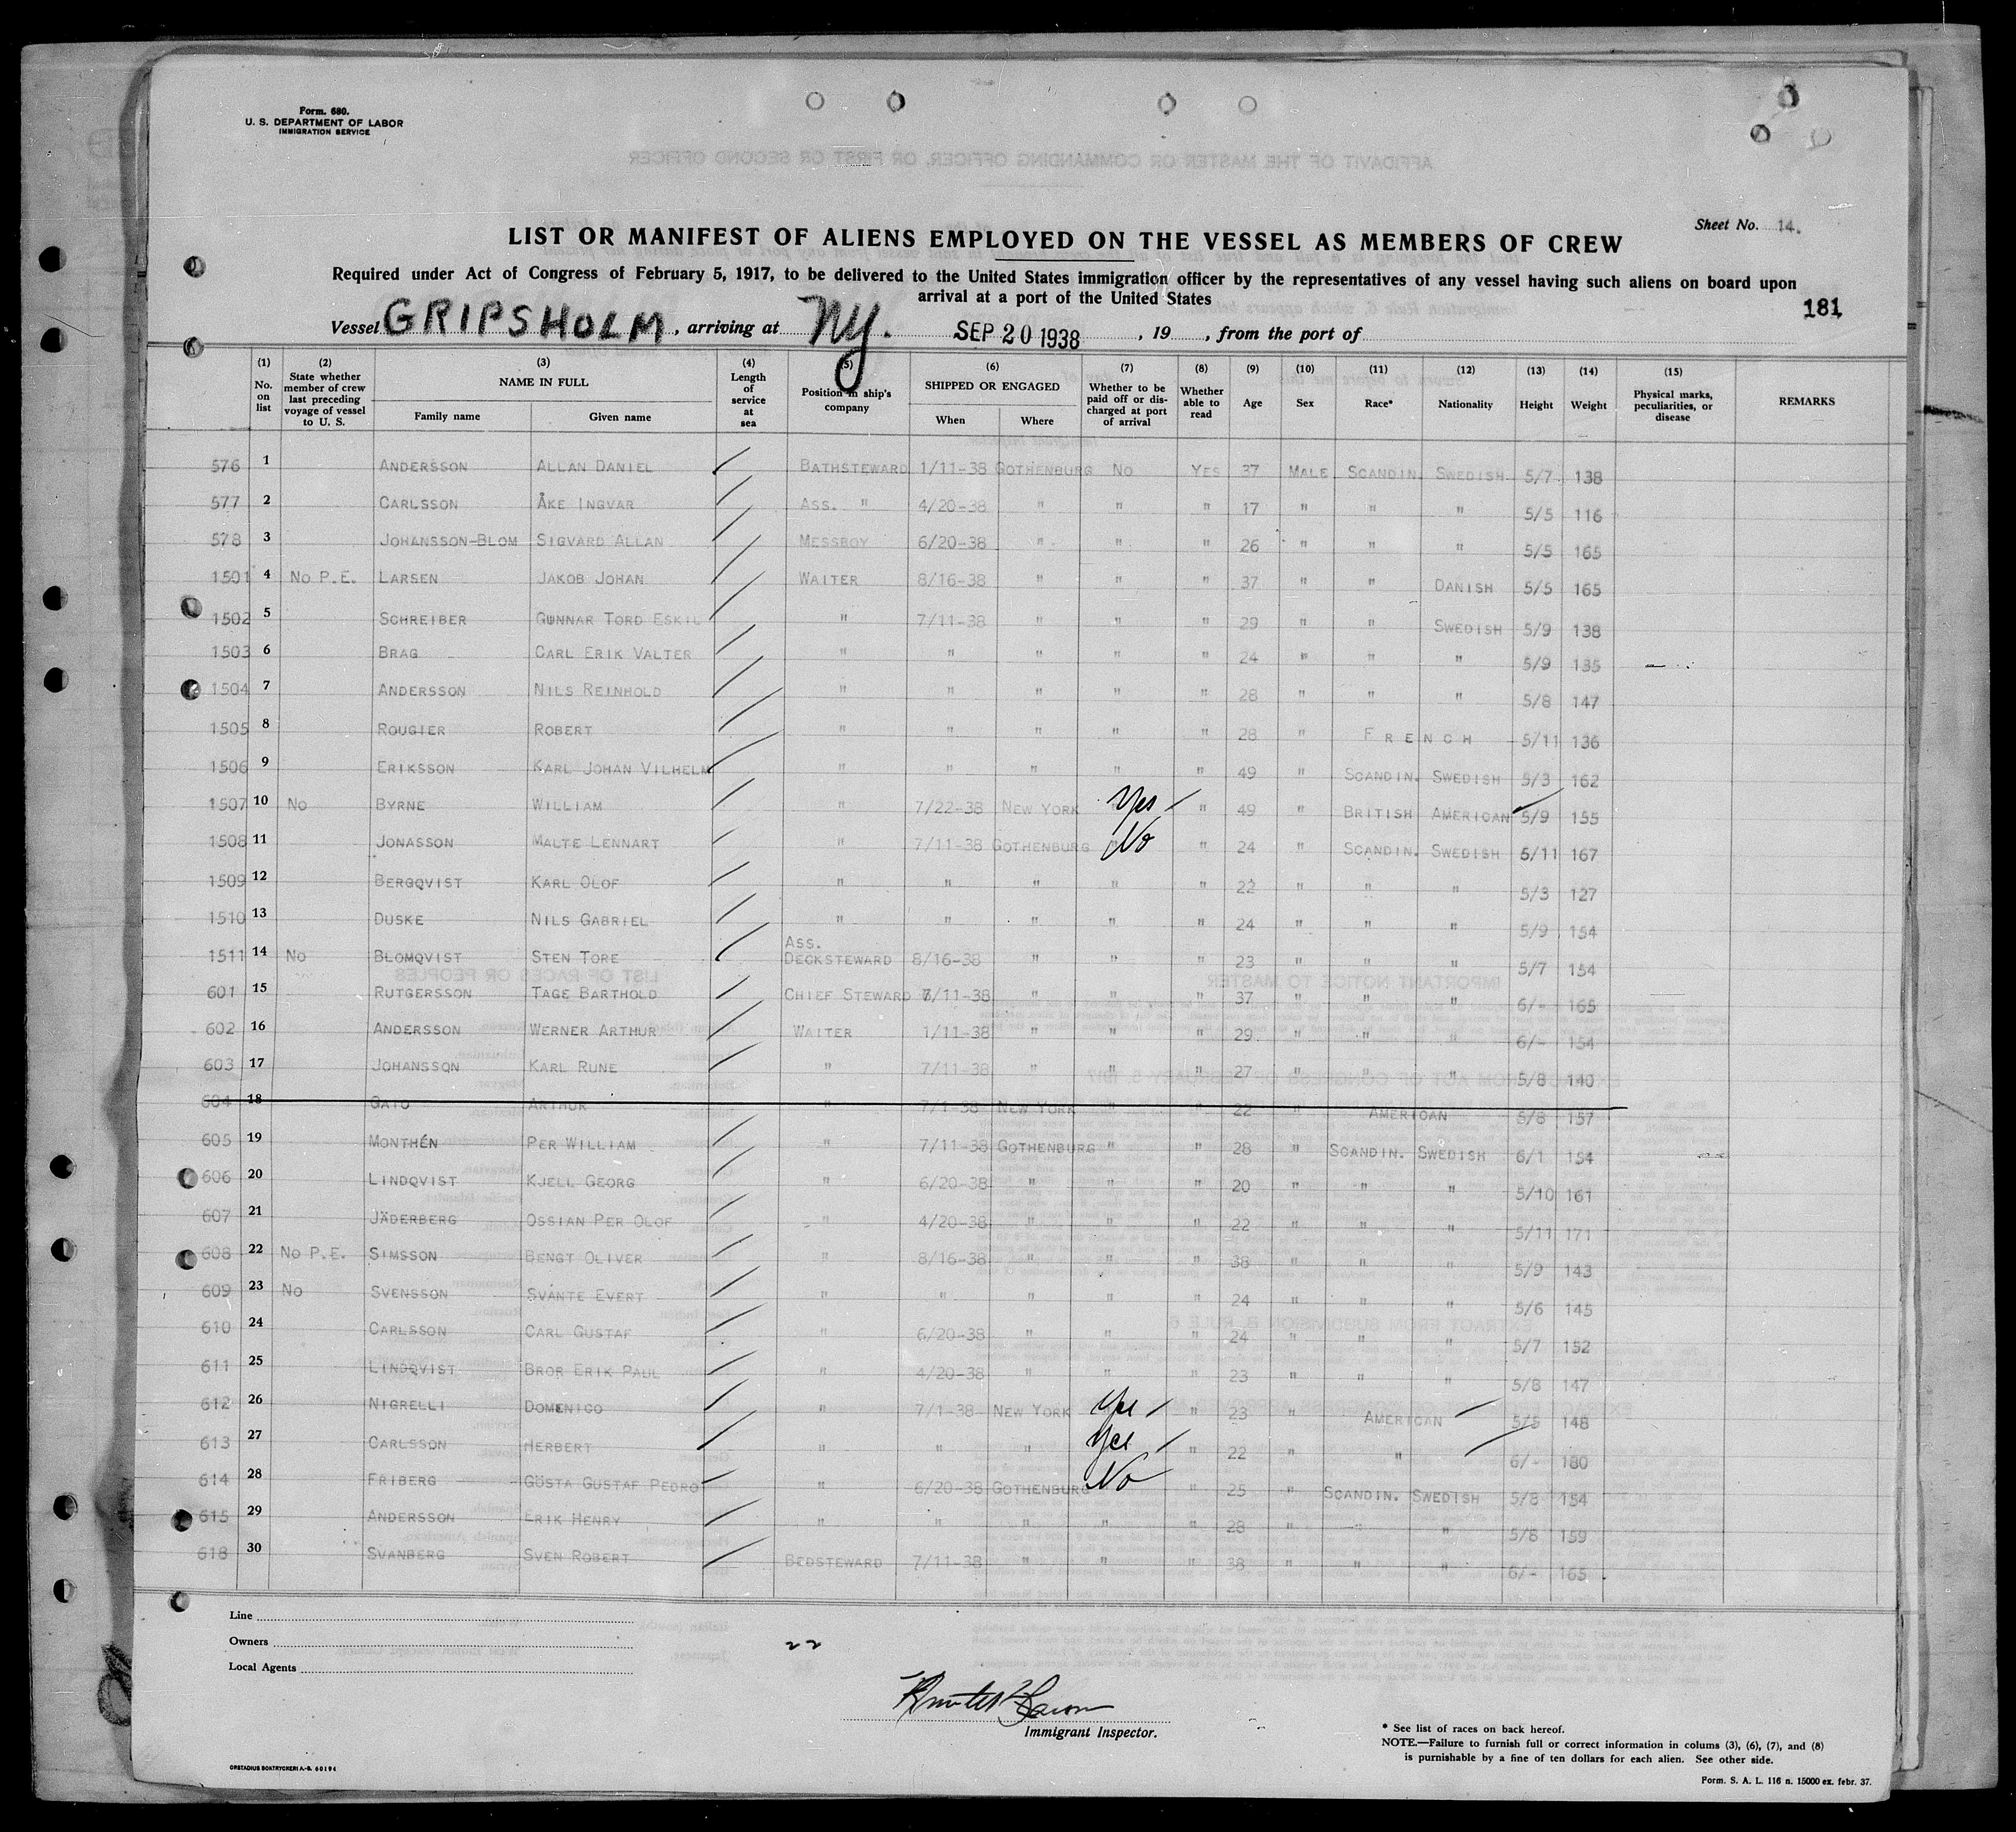 Form. 680.
U. S. DEPARTMENT OF LABOR
IMMIGRATION SERVICE
Sheet No. 14.
LIST OR MANIFEST OF ALIENS EMPLOYED ON THE VESSEL AS MEMBERS OF CREW
Required under Act of Congress of February 5, 1917, to be delivered to the United States immigration officer by the representatives of any vessel having such aliens on board upon
arrival at a port of the United States
181
Vessel GRIPSHOLM, arriving at NY. SEP 20 1938, 19, from the port of
(1) No. on list (2) State whether member of crew last preceding voyage of vessel to U. S. (3) NAME IN FULL Family name Given name (4) Length of service at sea (5) Position in ship's company (6) SHIPPED OR ENGAGED When Where (7) Whether to be paid off or discharged at port of arrival (8) Whether able to read (9) Age (10) Sex (11) Race* (12) Nationality (13) Height (14) Weight (15) Physical marks, peculiarities, or disease REMARKS
576 1 ANDERSSON ALLAN DANIEL / BATHSTEWARD 1/11-38 GOTHENBURG NO YES 37 MALE SCANDIN. SWEDISH 5/7 138
577 2 CARLSSON ÅKE INGVAR / ASS. " 4/20-38 " " " 17 " " " 5/5 116
578 3 JOHANSSON-BLOM SIGVARD ALLAN / MESSBOY 6/20-38 " " " 26 " " " 5/5 165
1501 4 NO P.E. LARSEN JAKOB JOHAN / WAITER 8/16-38 " " " 37 " " DANISH 5/5 165
1502 5 SCHREIBER GUNNAR TORD ESKIL / " 7/11-38 " " " 29 " " SWEDISH 5/9 138
1503 6 BRAG CARL ERIK VALTER / " " " " " 24 " " " 5/9 135
1504 7 ANDERSSON NILS REINHOLD / " " " " " 28 " " " 5/8 147
1505 8 ROUGIER ROBERT / " " " " " 28 " FRENCH 5/11 136
1506 9 ERIKSSON KARL JOHAN VILHELM / " " " " " 49 " SCANDIN. SWEDISH 5/3 162
1507 10 NO BYRNE WILLIAM / " 7/22-38 NEW YORK Yes / " 49 " BRITISH AMERICAN 5/9 155
1508 11 JONASSON MALTE LENNART / " 7/11-38 GOTHENBURG No " 24 " SCANDIN. SWEDISH 5/11 167
1509 12 BERGQVIST KARL OLOF / " " " " " 22 " " " 5/3 127
1510 13 DUSKE NILS GABRIEL / " " " " " 24 " " " 5/9 154
1511 14 NO BLOMQVIST STEN TORE / ASS. DECKSTEWARD 8/16-38 " " " 23 " " " 5/7 154
601 15 RUTGERSSON TAGE BARTHOLD / CHIEF STEWARD 7/11-38 " " " 37 " " " 6/- 165
602 16 ANDERSSON WERNER ARTHUR / WAITER 1/11-38 " " " 29 " " " 6/- 154
603 17 JOHANSSON KARL RUNE / " 7/11-38 " " " 27 " " " 5/8 140
604 18 GATO ARTHUR " 7/1-38 NEW YORK " " 22 " AMERICAN 5/8 157
605 19 MONTHÉN PER WILLIAM / " 7/11-38 GOTHENBURG " " 28 " SCANDIN. SWEDISH 6/1 154
606 20 LINDQVIST KJELL GEORG / " 6/20-38 " " " 20 " " " 5/10 161
607 21 JÄDERBERG OSSIAN PER OLOF / " 4/20-38 " " " 22 " " " 5/11 171
608 22 NO P.E. SIMSSON BENGT OLIVER / " 8/16-38 " " " 38 " " " 5/9 143
609 23 NO SVENSSON SVANTE EVERT / " " " " " 24 " " " 5/6 145
610 24 CARLSSON CARL GUSTAF / " 6/20-38 " " " 24 " " " 5/7 152
611 25 LINDQVIST BROR ERIK PAUL / " 4/20-38 " " " 23 " " " 5/8 147
612 26 NIGRELLI DOMENICO / " 7/1-38 NEW YORK Yes / " 23 " AMERICAN 5/5 148
613 27 CARLSSON HERBERT / " " " Yes / " 22 " " 6/- 180
614 28 FRIBERG GÖSTA GUSTAF PEDRO / " 6/20-38 GOTHENBURG No " 25 " SCANDIN. SWEDISH 5/8 154
615 29 ANDERSSON ERIK HENRY / " " " " " 28 " " " 5/8 159
618 30 SVANBERG SVEN ROBERT / BEDSTEWARD 7/11-38 " " " 38 " " " 6/- 165
Line
Owners
Local Agents
22
Immigrant Inspector.
* See list of races on back hereof.
NOTE.—Failure to furnish full or correct information in colums (3), (6), (7), and (8)
is punishable by a fine of ten dollars for each alien. See other side.
ORSTADIUS BOKTRYCKERI A.-B. 60194
Form. S. A. L. 116 n. 15000 ex. febr. 37.